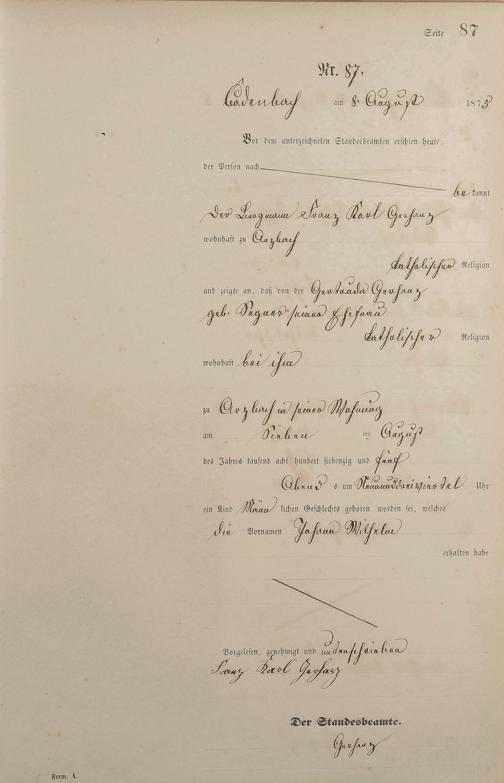 Seite 87
Nr. 87.
Cadenbach am 8. August 1875
Vor dem unterzeichneten Standesbeamten erschien heute,
der Person nach
be kannt
der Bergmann Franz Karl Gerharz
wohnhaft zu Arzbach
katholischer Religion
und zeigte an, daß von der Gertruda Gerharz
geb. seiner Ehefrau
katholischer Religion
wohnhaft bei ihm
zu Arzbach in seiner Wohnung
am Sieben ten August
des Jahres tausend acht hundert siebenzig und fünf
Abend s um Neununddreiviertel Uhr
ein Kind Männ lichen Geschlechts geboren worden sei, welches
die Vornamen Johann Wilhelm
erhalten habe
Vorgelesen, genehmigt und unterschrieben
Franz Karl Gerharz
Der Standesbeamte.
Gerharz
Form. A.